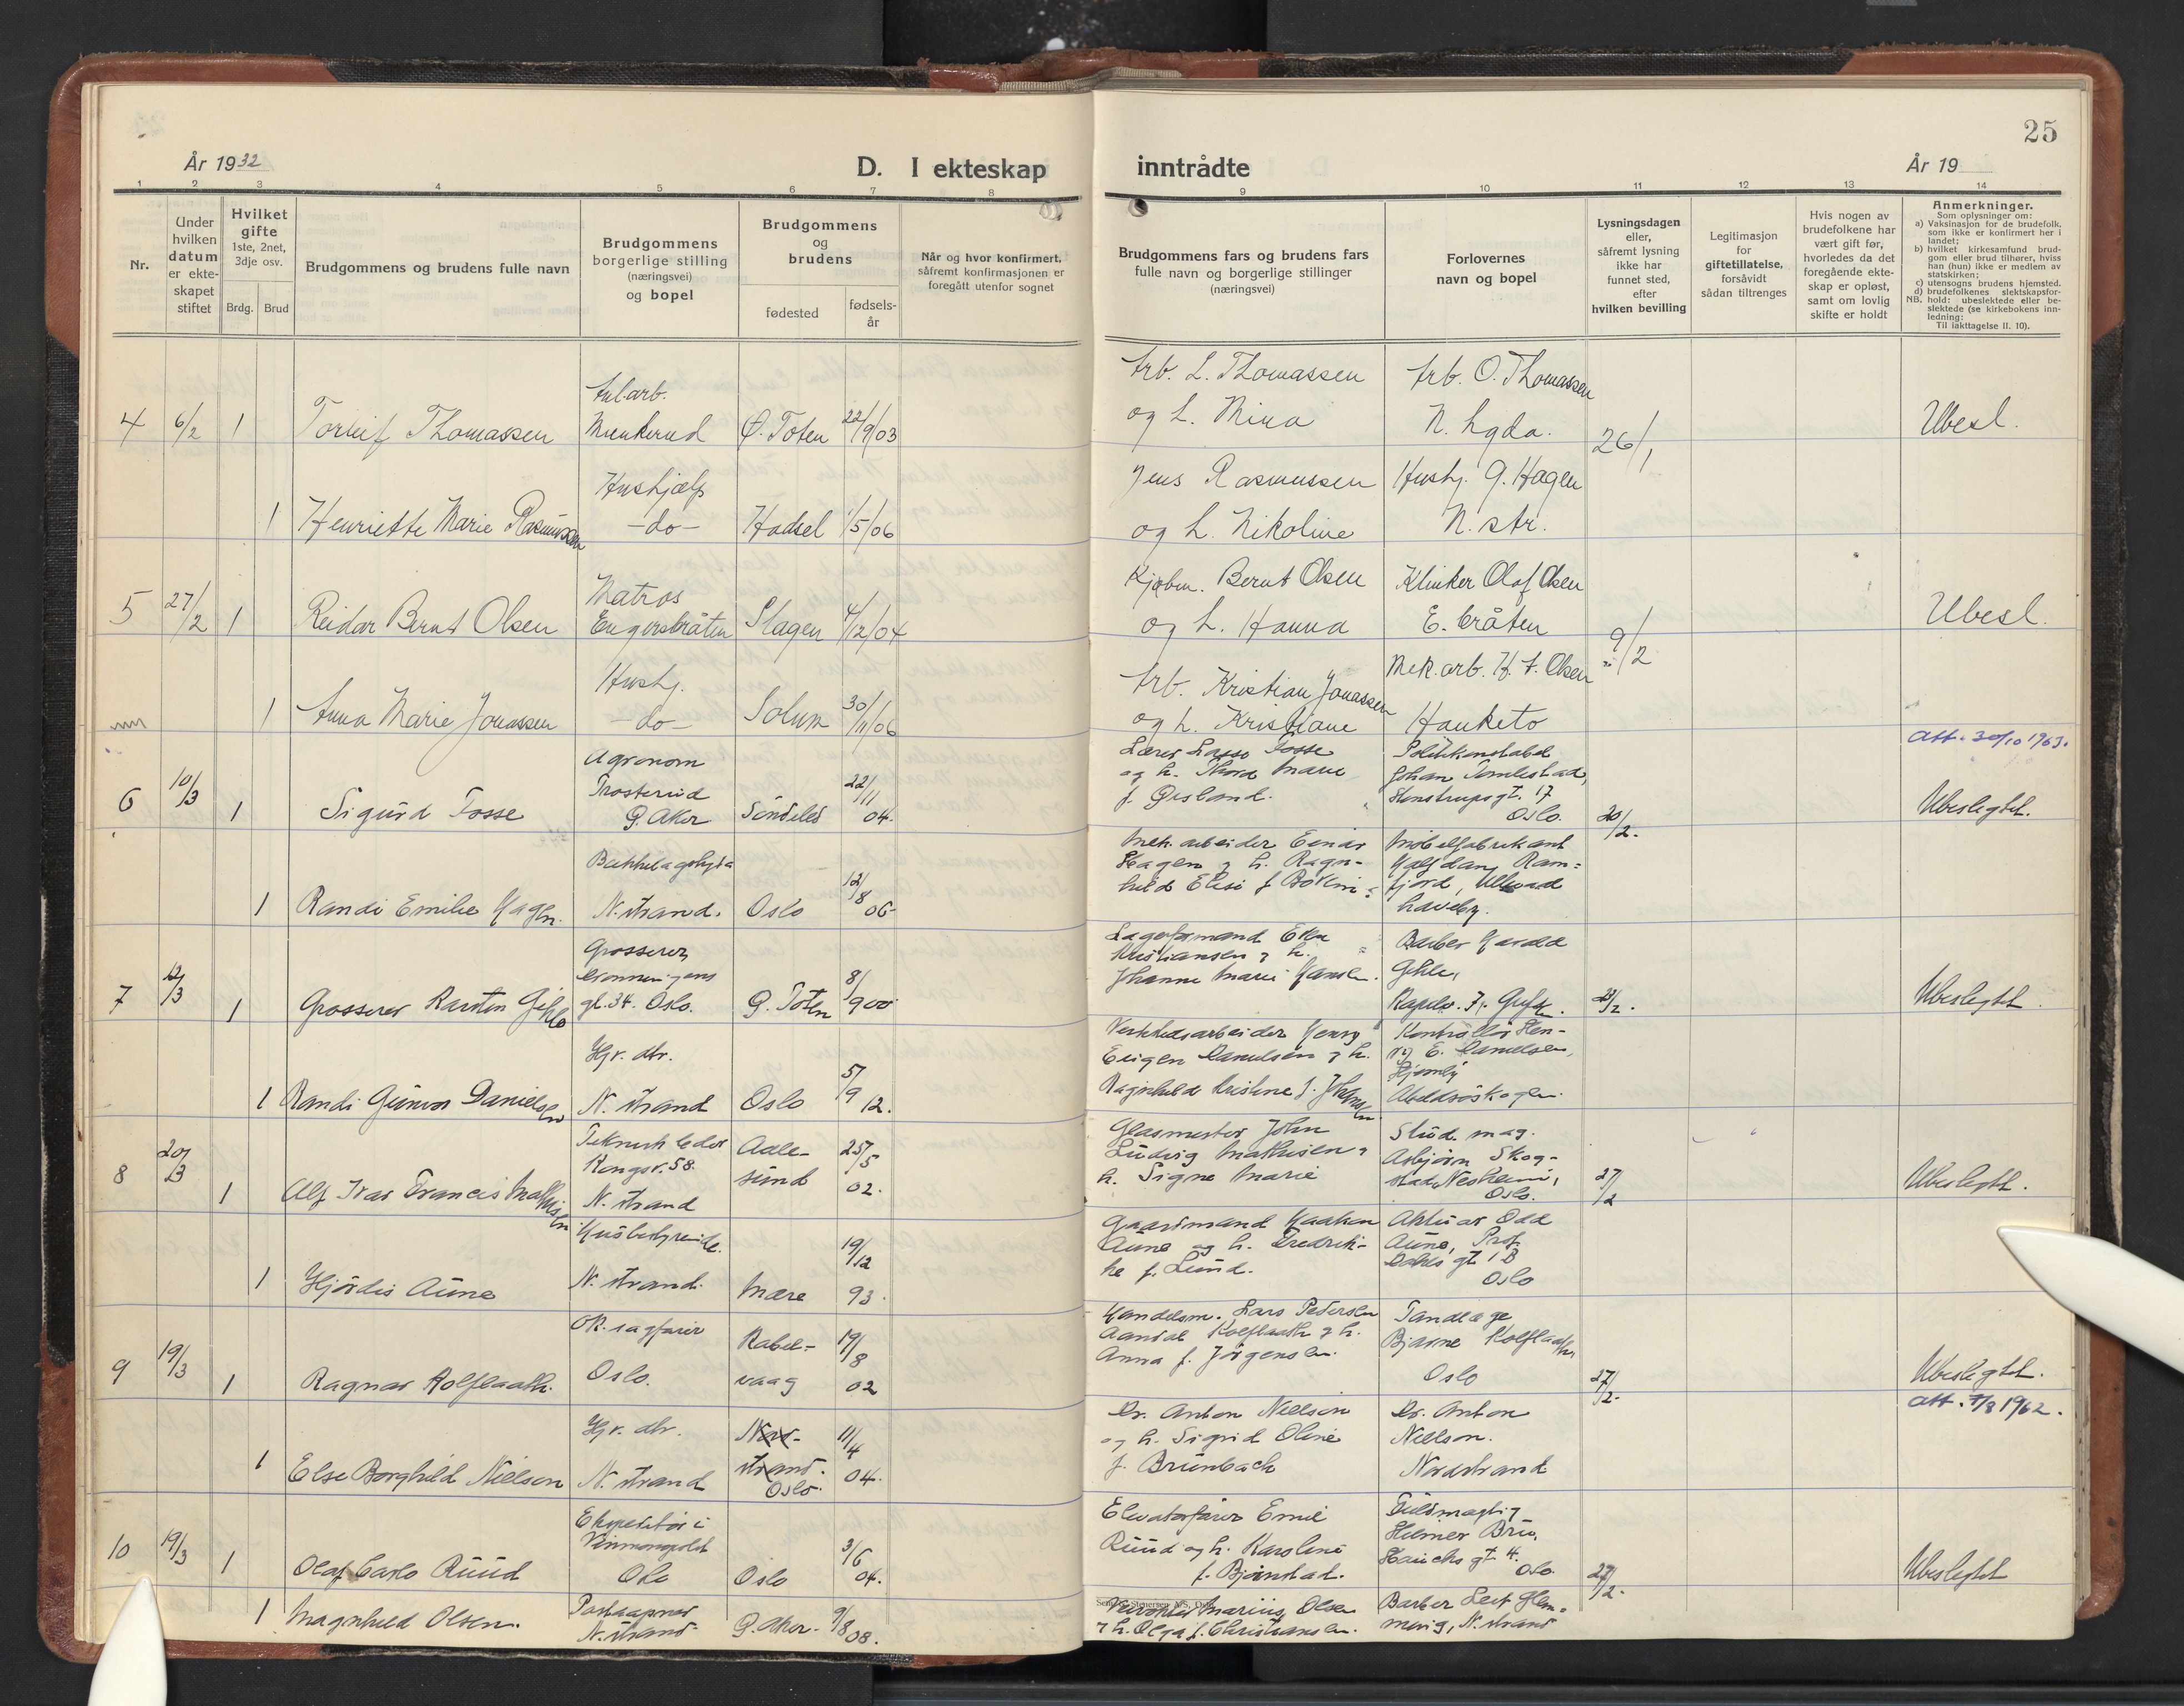 25
År 1932
D. I ekteskap
inntrådte
År 19
1 2 3 4 5 6 7 8 9 10 11 12 13 14
Nr.
Under hvilken datum er ekte-skapet stiftet
Hvilket gifte
1ste, 2net, 3dje osv.
Brdg. Brud
Brudgommens og brudens fulle navn
Brudgommens
borgerlige stilling
(næringsvei)
og bopel
Brudgommens
og
brudens
fødested
fødsels-år
Når og hvor konfirmert,
såfremt konfirmasjonen er
foregått utenfor sognet
Brudgommens fars og brudens fars
fulle navn og borgerlige stillinger
(næringsvei)
Forlovernes
navn og bopel
Lysningsdagen
eller,
såfremt lysning
ikke har
funnet sted,
efter
hvilken bevilling
Legitimasjon
for
giftetillatelse,
forsåvidt
sådan tiltrenges
Hvis nogen av
brudefolkene har
vært gift før,
hvorledes da det
foregående ekte-
skap er opløst,
samt om lovlig
skifte er holdt
Anmerkninger.
Som oplysninger om:
a) Vaksinasjon for de brudefolk,
som ikke er konfirmert her i
landet;
b) hvilket kirkesamfund brud-
gom eller brud tilhører, hviss
han (hun) ikke er medlem av
statskirken;
c) utensogns brudens hjemsted.
d) brudefolkenes slektskapsfor-
NB. hold: ubeslektede eller be-
slektede (se kirkebokens inn-
ledning:
Til iakttagelse II. 10).
4 6/2 1 Torleif Thomassen
Munkerud Ø. Toten 22/9/03
Arb. L. Thomassen
og h. Mina
Arb. O. Thomassen
26/1
Ubesl.
1 Henriette Marie Rasmussen
Hushjælp
-do- Hadsel 1/5/06
Jens Rasmussen
og h. Nikoline
Hushj. G. Hagen
N. str.
5 27/2 1 Reidar Bernt Olsen
Matros
Engersbråten Slagen 4/12/04
Kjøbm. Bernt Olsen
og h. Hanna
Klinker Olaf Olsen
E. bråten
9/2
Ubesl.
1 Anna Marie Jonassen
Hushj.
-do- Solum 30/11/06
Arb. Kristian Jonassen
og h. Kristiane
Mek. arb. H. F. Olsen
Hauketo
Att. 30/10 1963.
6 10/3 1 Sigurd Fosse
Agronom
Trosterud
Ø. Aker Søndeled 22/11 04.
Lærer Lasse Fosse
og h. Thora Marie
f. Øisland.
Politikonstabel
Johan
Stenstrupsgt. 17
Oslo.
20/2.
Ubeslegtet.
1 Randi Emilie Hagen.
Bækkelagshøgda
N. strand. Oslo 12/8 06
Mek. arbeider Einar
Hagen og h. Ragn-
hild Elise f.
Møbelfabrikant
Halfdan Ram-
fjord, Ullevaal
haveby.
7 12/3 1 Grosserer Karsten Gihle
Grosserer
gt. 34. Oslo. Ø. Toten 8/9 00
Lagerformand
Kristiansen og h.
Johanne Marie Hansen.
Barber Harald
Gihle,
23/2.
Ubeslegtet
1 Randi Gunvor Danielsen
Hjv. dtr.
N. strand Oslo 5/9 12.
Verkstedsarbeider Henry
Eugen Danielsen og h.
Ragnhild Kristine f. Johansen
Kontrollør Hen-
ry E. Danielsen,
Abeldsøskogen.
8 20/3 1 Alf Ivar Francis Mathisen
Teknisk leder
Kongsv. 58.
N. strand
Aale-
sund 25/5 02.
Glasmester John
Ludvig Mathisen og
h. Signe Marie
Stud. mag.
Asbjørn Skog-
stad, Nesheim,
Oslo.
27/2
Ubeslegtet.
1 Hjørdis Aune
Husbestyrerinde.
N. strand. Mære 19/12 93.
Gaardmand Haakon
Aune og h. Fredrik-
ke f. Lund.
Aktuar Odd
Aune, Prof.
Dahls gt. 1 B
Oslo
9 19/3 1 Ragnar Kolflaath.
OR. sagfører
Oslo.
Kabel-
vaag 19/8 02
Handelsm. Lars Pedersen
Aandal Kolflaath og h.
Anna f. Jørgensen.
Tandlæge
Bjarne Kolflaath
Oslo
27/2.
Ubeslegtet.
Att. 7/8 1962.
1 Else Borghild Nielsen
Hjv. dtr.
N. strand
Nord-
strand.
Oslo. 11/4 04.
Dr. Anton Nielsen
og h. Sigrid Oline
f. Brunbach
Dr. Anton
Nielsen.
Nordstrand
10 19/3 1 Olaf Carlo Ruud
Ekspeditør i
Vinmonopolet
Oslo Oslo 3/6 04.
Elevatorfører Emil
Ruud og h. Karoline
f. Bjørnstad.
Fuldmægtig
Hilmer Bru,
Hauchs gt. 4.
Oslo.
27/2.
Ubeslegtet
1 Magnhild Olsen.
Postaapner
N. strand Ø. Aker. 9/8 08.
Marius Olsen
og h. Olga f. Christiansen.
Barber Leif Flem-
ming, N. strand